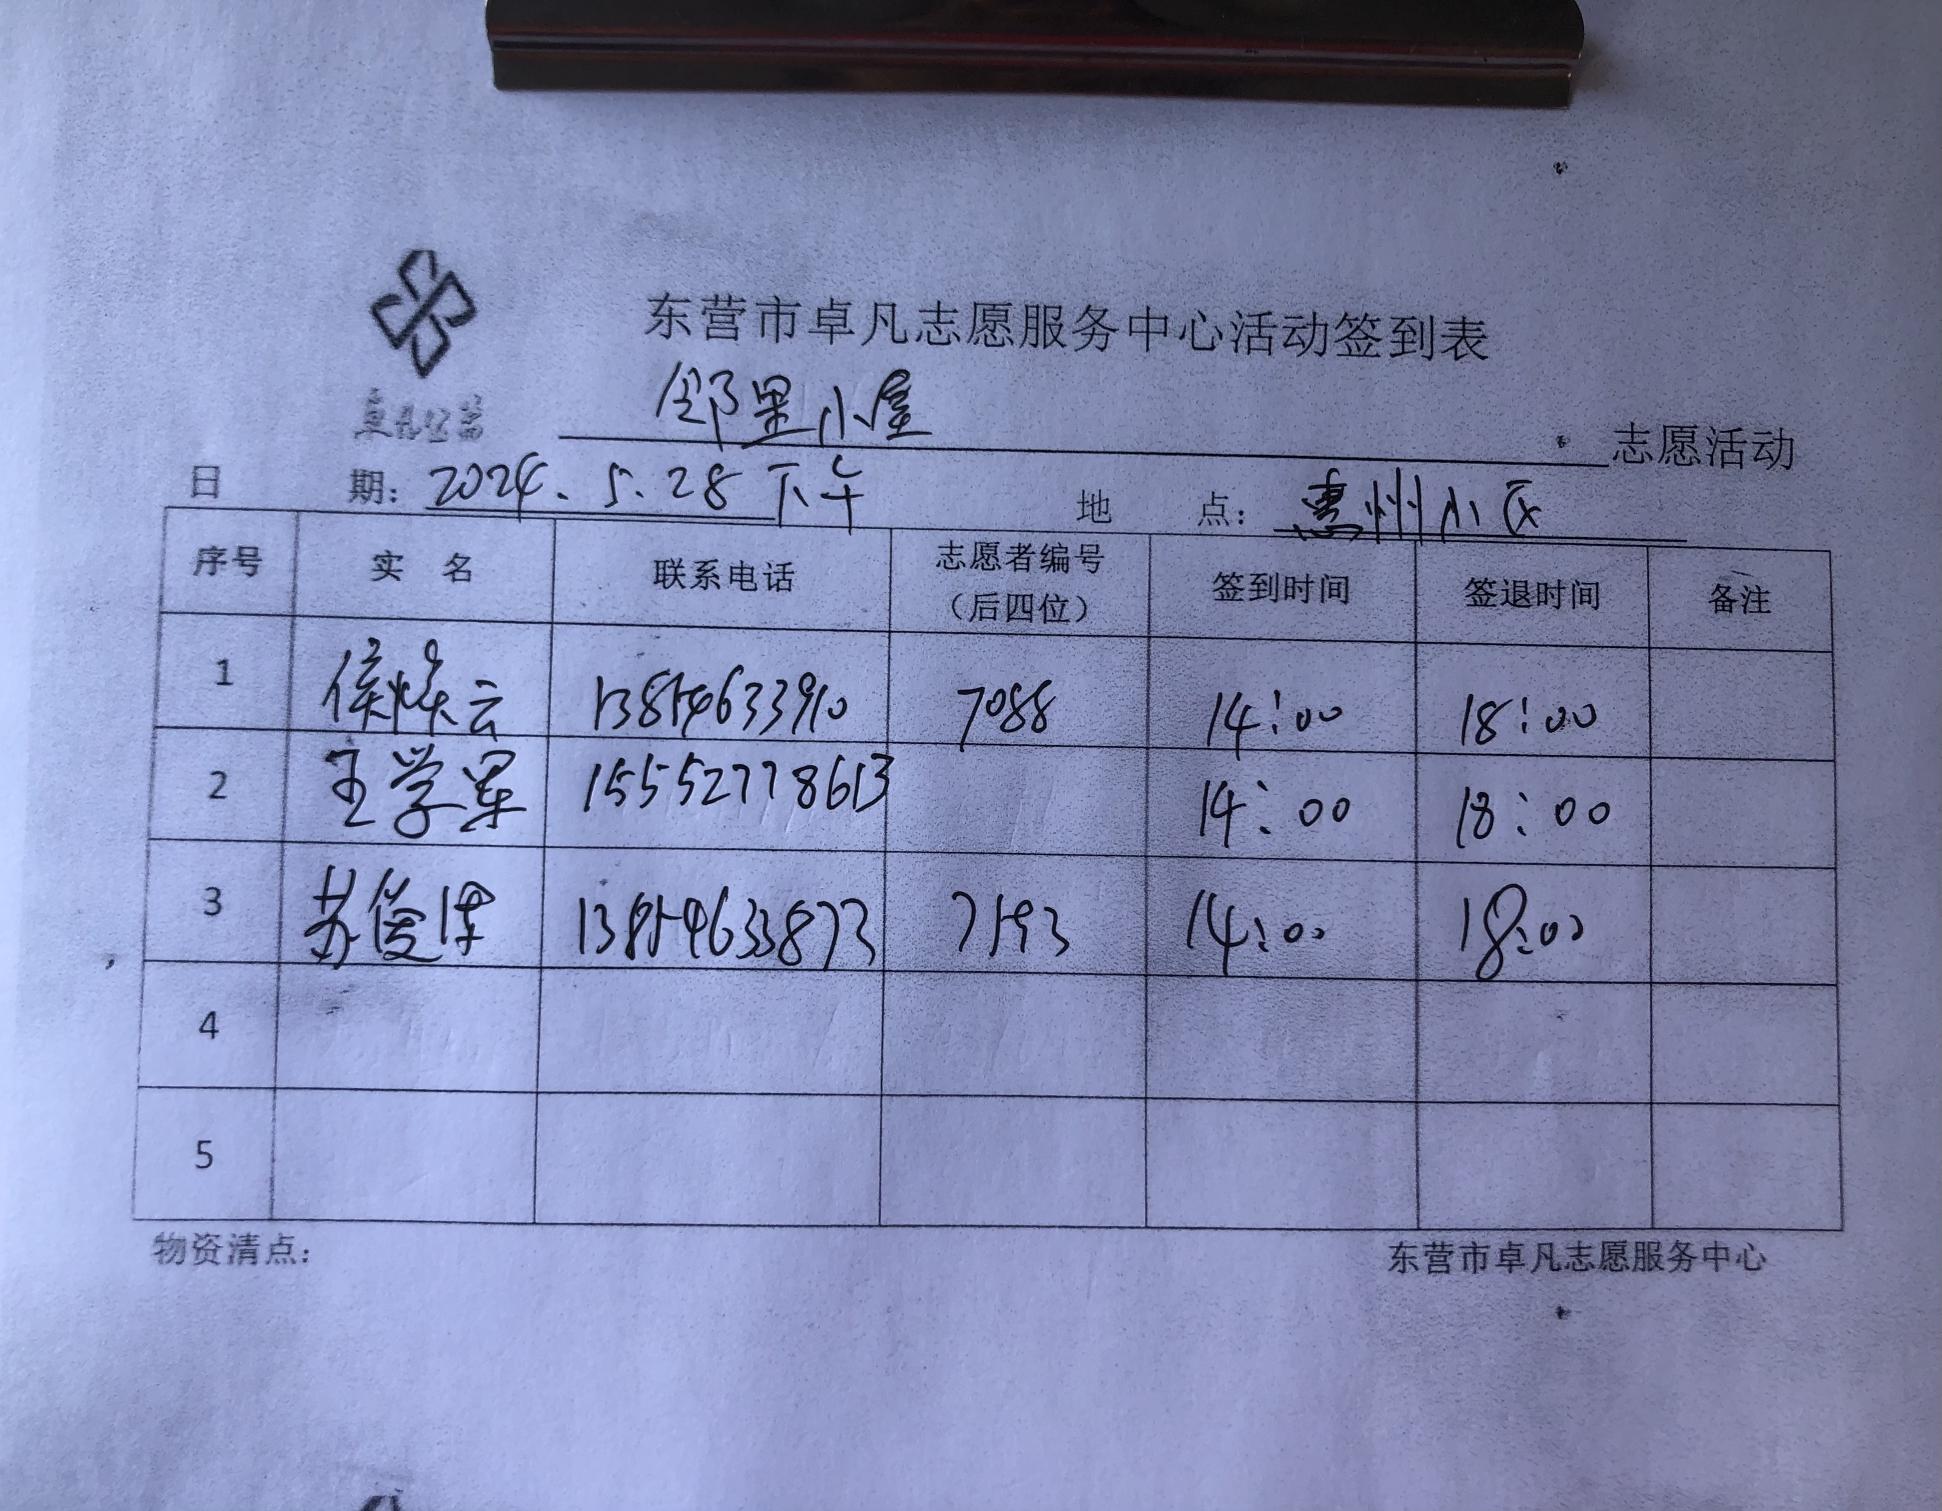 东营市卓凡志愿服务中心活动签到表
卓凡公益
邻里小屋 志愿活动
日 期：2024.5.28下午 地 点：惠州小区
序号 实 名 联系电话 志愿者编号（后四位） 签到时间 签退时间 备注
1 侯焕云 13854633910 7088 14:00 18:00
2 王学军 15552778613 14:00 18:00
3 苏俊 13854633873 7593 14:00 18:00
4
5
物资清点： 东营市卓凡志愿服务中心